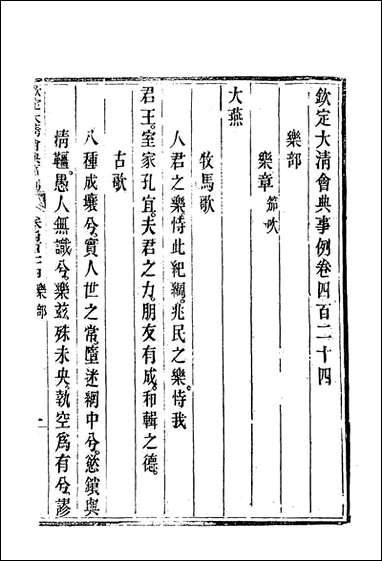 欽定大清會典事例卷四百二十四
樂部
樂章 笳吹
大燕
牧馬歌
人君之樂。恃此紀綱。兆民之樂。恃我
君王。室家孔宜。夫君之力。朋友有成。和輯之德。
古歌
八種成壞兮。實人世之常。墮迷網中兮。慾鎖與
情韁。愚人無識兮。樂茲殊未央。執空爲有兮。謬
欽定大清會典事例 卷四百二十四 樂部 一